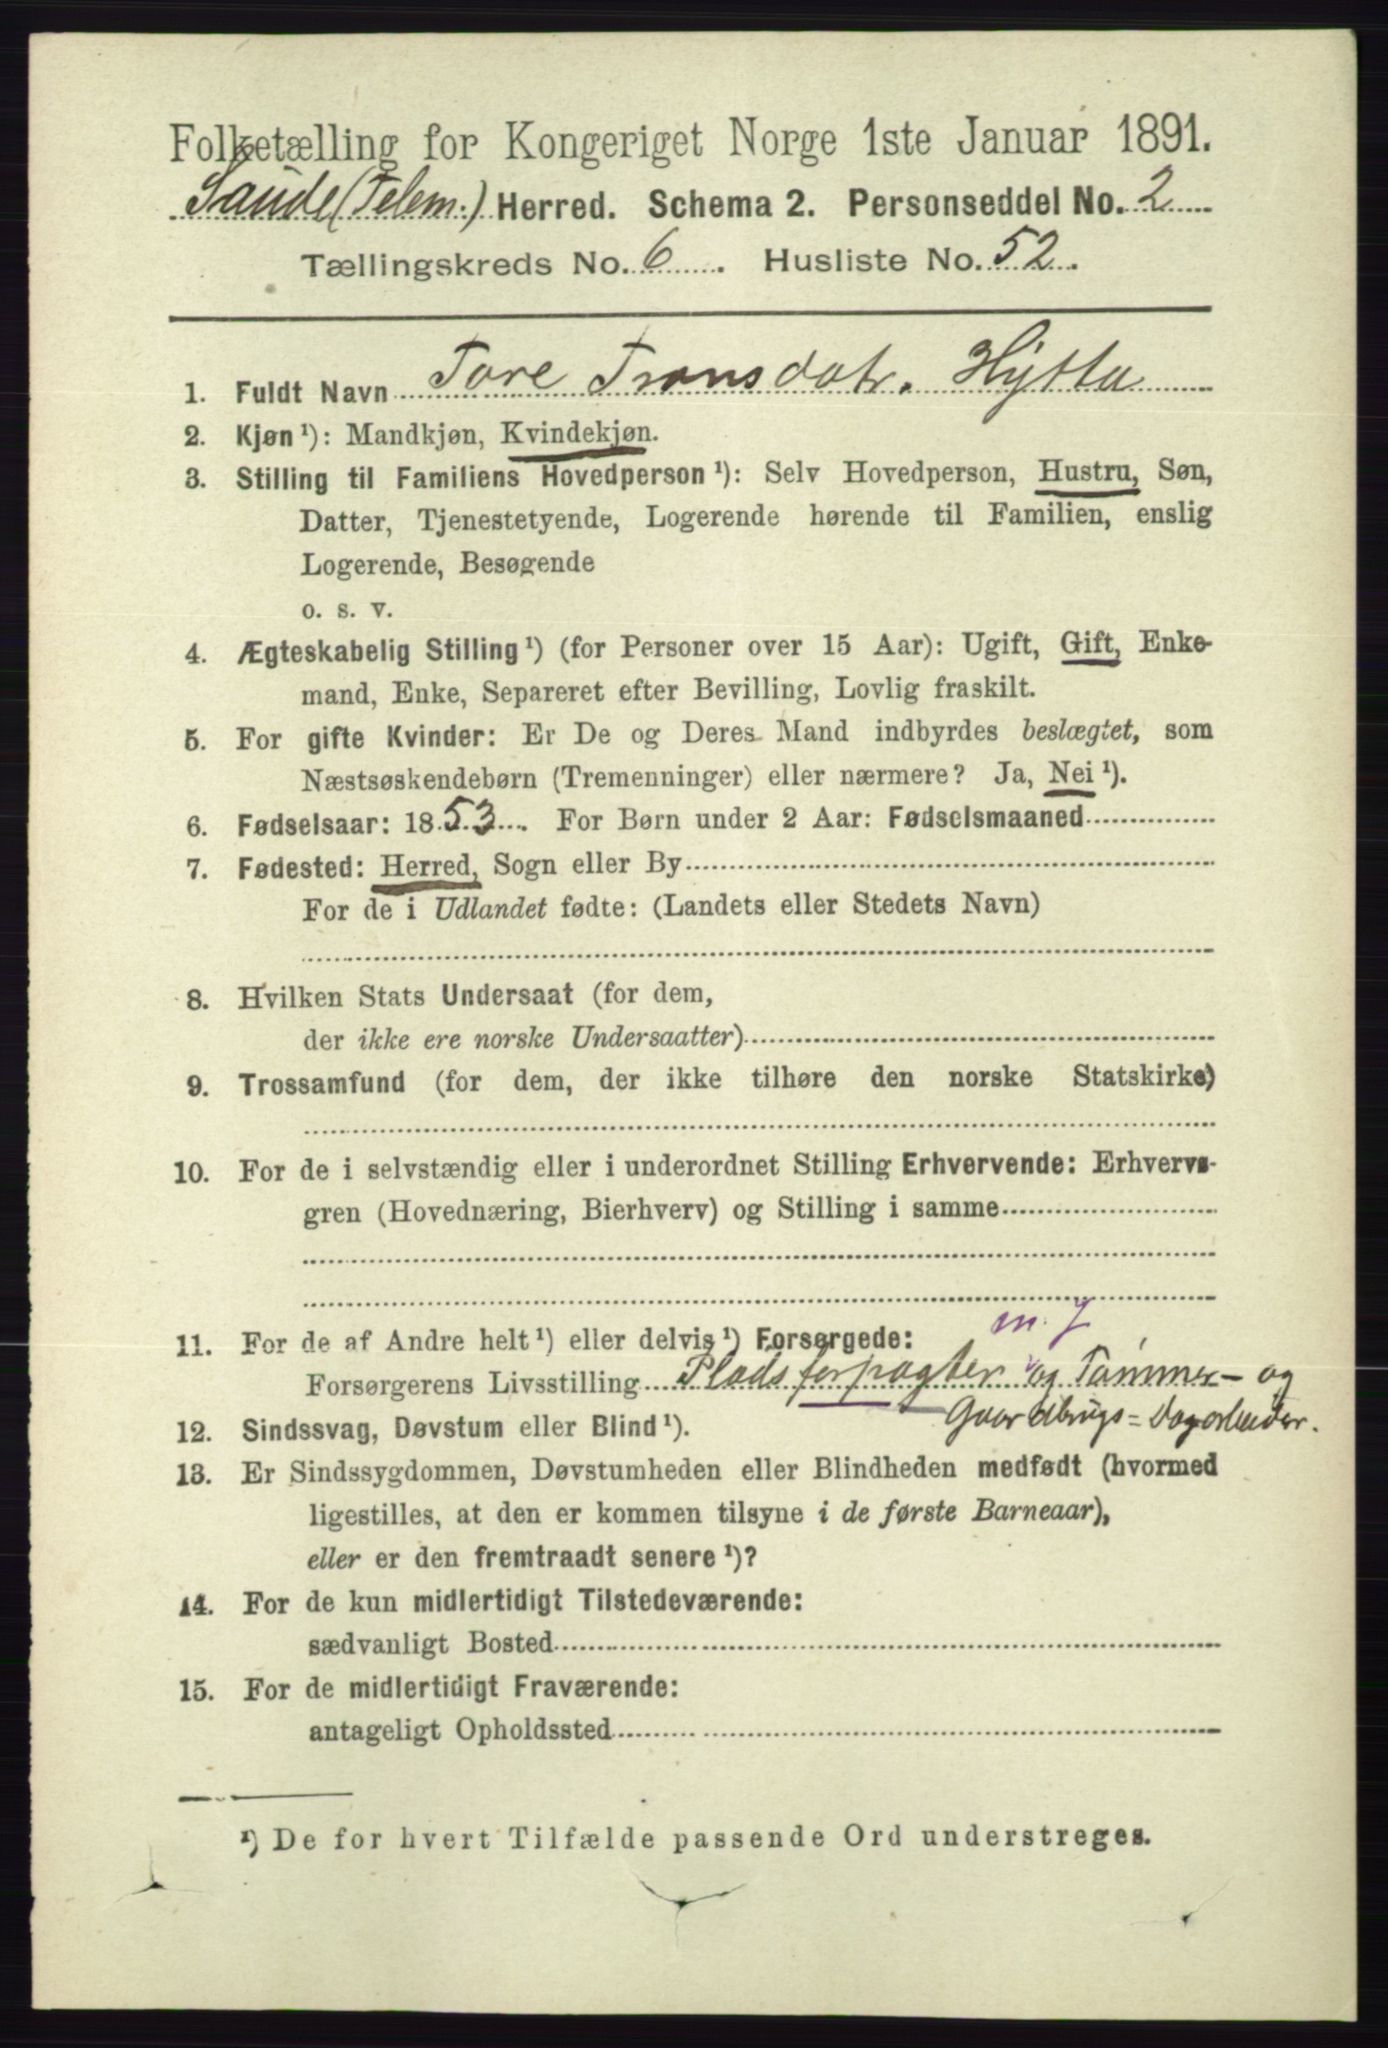 Folketælling for Kongeriget Norge 1ste Januar 1891.
Saude (Telem.) Herred. Schema 2. Personseddel No. 2
Tællingskreds No. 6. Husliste No. 52.
1. Fuldt Navn Tore Tronsdatr. Hytta
2. Kjøn ¹): Mandkjøn, Kvindekjøn.
3. Stilling til Familiens Hovedperson ¹): Selv Hovedperson, Hustru, Søn,
Datter, Tjenestetyende, Logerende hørende til Familien, enslig
Logerende, Besøgende
o. s. v.
4. Ægteskabelig Stilling ¹) (for Personer over 15 Aar): Ugift, Gift, Enke-
mand, Enke, Separeret efter Bevilling, Lovlig fraskilt.
5. For gifte Kvinder: Er De og Deres Mand indbyrdes beslægtet, som
Næstsøskendebørn (Tremenninger) eller nærmere? Ja, Nei ¹).
6. Fødselsaar: 1853. For Børn under 2 Aar: Fødselsmaaned
7. Fødested: Herred, Sogn eller By
For de i Udlandet fødte: (Landets eller Stedets Navn)
8. Hvilken Stats Undersaat (for dem,
der ikke ere norske Undersaatter)
9. Trossamfund (for dem, der ikke tilhøre den norske Statskirke)
10. For de i selvstændig eller i underordnet Stilling Erhvervende: Erhvervs-
gren (Hovednæring, Bierhverv) og Stilling i samme
m. J
11. For de af Andre helt ¹) eller delvis ¹) Forsørgede:
Forsørgerens Livsstilling Pladsforpagter og Tømmer- og
Gaardbrugs = Dagarbeider.
12. Sindssvag, Døvstum eller Blind ¹).
13. Er Sindssygdommen, Døvstumheden eller Blindheden medfødt (hvormed
ligestilles, at den er kommen tilsyne i de første Barneaar),
eller er den fremtraadt senere ¹)?
14. For de kun midlertidigt Tilstedeværende:
sædvanligt Bosted
15. For de midlertidigt Fraværende:
antageligt Opholdssted
¹) De for hvert Tilfælde passende Ord understreges.